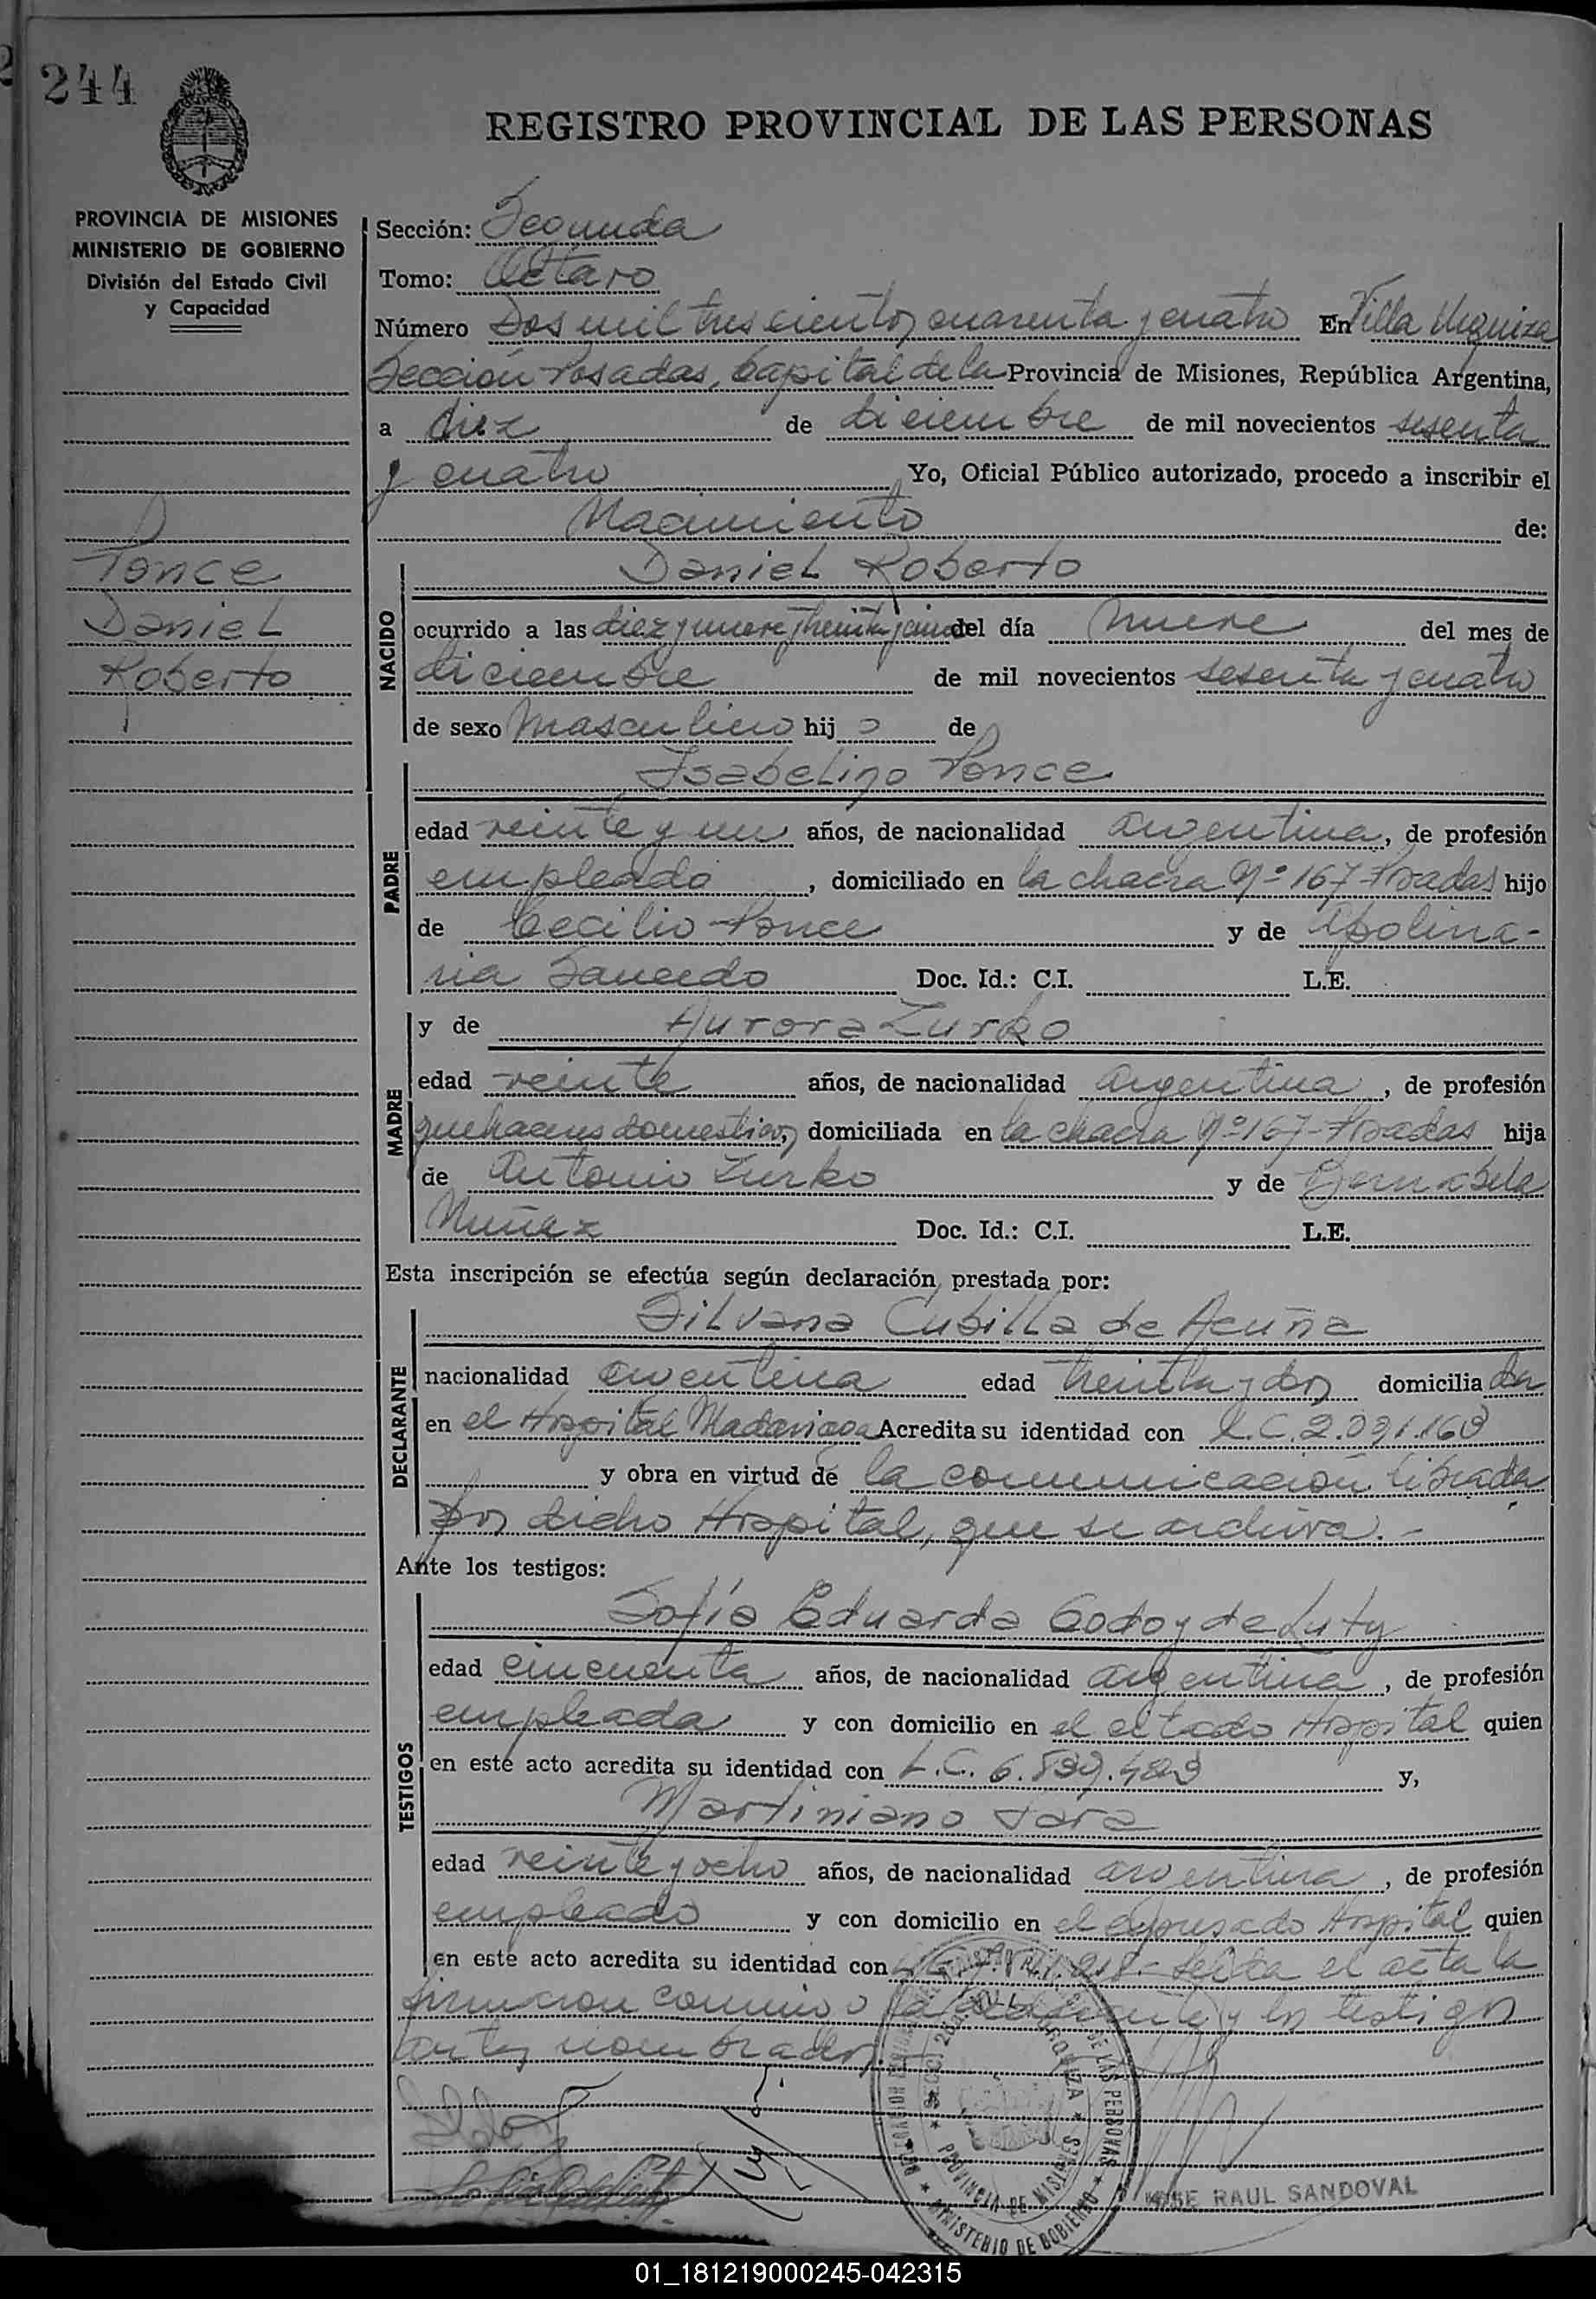 244
REGISTRO PROVINCIAL DE LAS PERSONAS
PROVINCIA DE MISIONES
MINISTERIO DE GOBIERNO
División del Estado Civil
y Capacidad
Ponce
Daniel
Roberto
Sección: Segunda
Tomo: Octavo
Número Dos mil trescientos cuarenta y cuatro En Villa Urquiza
Sección Posadas, Capital de la Provincia de Misiones, República Argentina,
a diez de diciembre de mil novecientos sesenta
y cuatro Yo, Oficial Público autorizado, procedo a inscribir el
Nacimiento de:
Daniel Roberto
NACIDO
ocurrido a las diez y nueve y treinta y cinco del día nueve del mes de
diciembre de mil novecientos sesenta y cuatro
de sexo Masculino hijo de
Isabelino Ponce
PADRE
edad veinte y un años, de nacionalidad argentina, de profesión
empleado, domiciliado en la chacra Nº 167 Posadas hijo
de Cecilio Ponce y de Apolina-
ria Doc. Id.: C.I. L.E.
y de Aurora Zurko
MADRE
edad veinte años, de nacionalidad argentina, de profesión
quehaceres domesticos, domiciliada en la chacra Nº 167-Posadas hija
de Antonio Zurko y de
Nuñez Doc. Id.: C.I. L.E.
Esta inscripción se efectúa según declaración prestada por:
Silvana Cubilla de Acuña
DECLARANTE
nacionalidad argentina edad treinta y dos domiciliada
en el Hospital Madariaga Acredita su identidad con L.C. 2.091.163
y obra en virtud de la comunicación librada
por dicho Hospital, que se archiva.-
Ante los testigos:
Sofía Eduarda Godoy de Luty
TESTIGOS
edad cincuenta años, de nacionalidad argentina, de profesión
empleada y con domicilio en el citado Hospital quien
en este acto acredita su identidad con L.C. 6.839.483 y,
Martiniano Jara
edad veinte y ocho años, de nacionalidad argentina, de profesión
empleado y con domicilio en el expresado Hospital quien
en este acto acredita su identidad con Leída el acta la
firmaron conmigo la declarante y los testigos
antes nombrados.
MINISTERIO DE GOBIERNO
PROVINCIA DE MISIONES
DE LAS PERSONAS
JOSE RAUL SANDOVAL
01_181219000245-042315